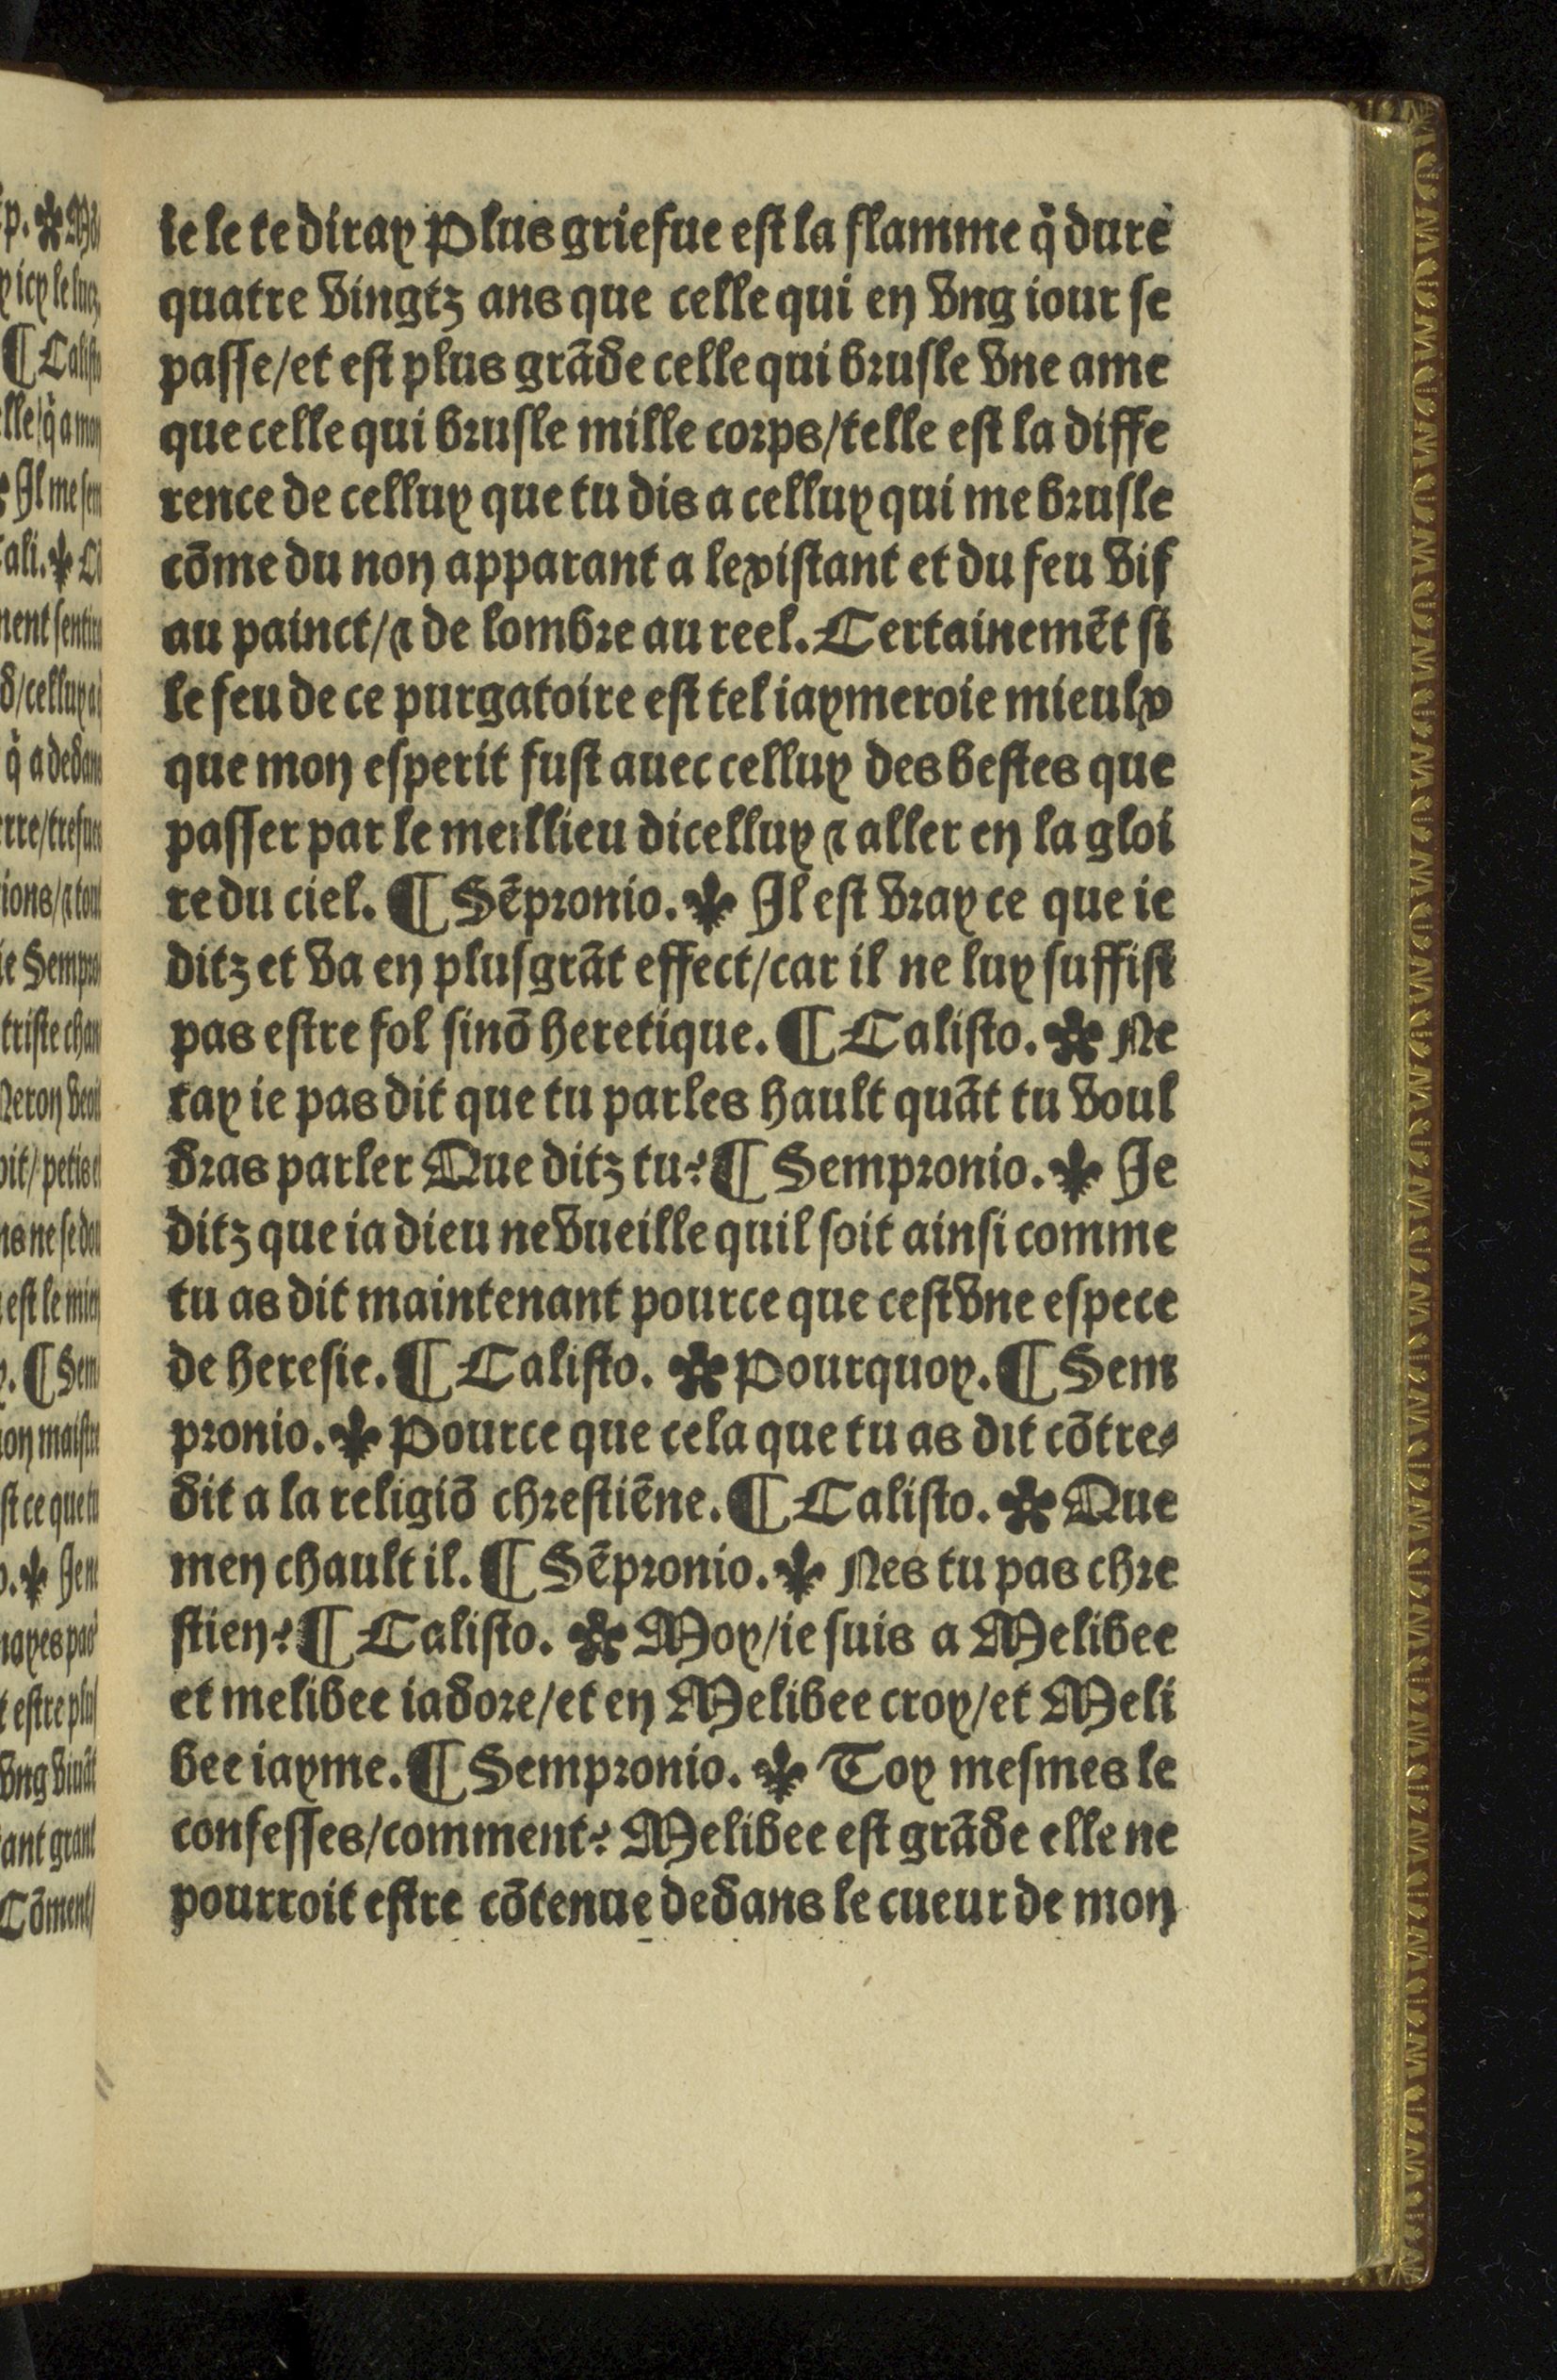 ie le te diray Plus griefue est la flamme q̃ dure
quatre vingtz ans que celle qui en vng iour se
passe/et est plus grãde celle qui brusle vne ame
que celle qui brusle mille corps/telle est la diffe
rence de celluy que tu dis a celluy qui me brusle
cõme du non apparant a lexistant et du feu vif
au painct/⁊ de lombre au reel. Certainemẽt si
le feu de ce purgatoire est tel iaymeroie mieulx
que mon esperit fust auec celluy des bestes que
passer par le meillieu dicelluy ⁊ aller en la gloi
re du ciel. ¶ Sẽpronio. ⚜ Il est vray ce que ie
ditz et va en plus grãt effect/car il ne luy suffist
pas estre fol sinõ heretique. ¶ Calisto. ✽ Ne
tay ie pas dit que tu parles hault quãt tu voul
dras parler Que ditz tu? ¶ Sempronio. ⚜ Je
ditz que ia dieu ne vueille quil soit ainsi comme
tu as dit maintenant pource que cest vne espece
de heresie. ¶ Calisto. ✽ Pourquoy. ¶ Sem
pronio. ⚜ Pource que cela que tu as dit cõtre⸗
dit a la religiõ chrestiẽne. ¶ Calisto. ✽ Que
men chault il. ¶ Sẽpronio. ⚜ Nes tu pas chre
stien? ¶ Calisto. ✽ Moy/ie suis a Melibee
et melibee iadore/et en Melibee croy/et Meli
bee iayme. ¶ Sempronio. ⚜ Toy mesmes le
confesses/comment? Melibee est grãde elle ne
pourroit estre cõtenue dedans le cueur de mon